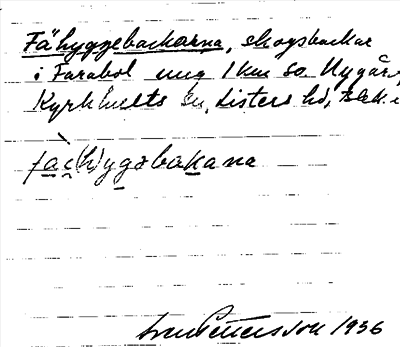 Fähyggebackarna, skogsbackar
i Farabol ung 1 km so Nygård,
Kyrkhults sn, Listers hd, Blek.
fac(h)ygəbakana
Pettersson 1936